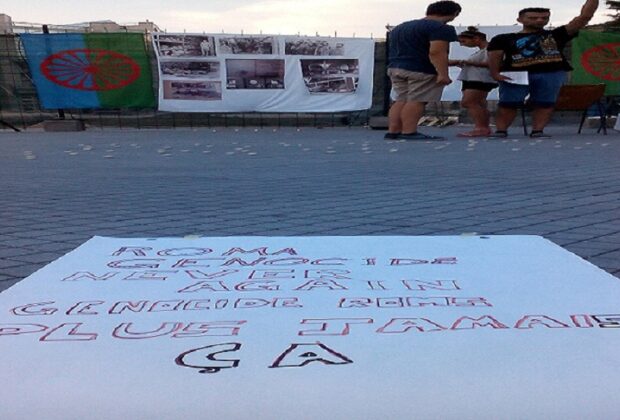 ROMA
GENOCIDE
NEVER
AGAIN
GENOCIDE ROMS
PLUS JAMAIS
ÇA